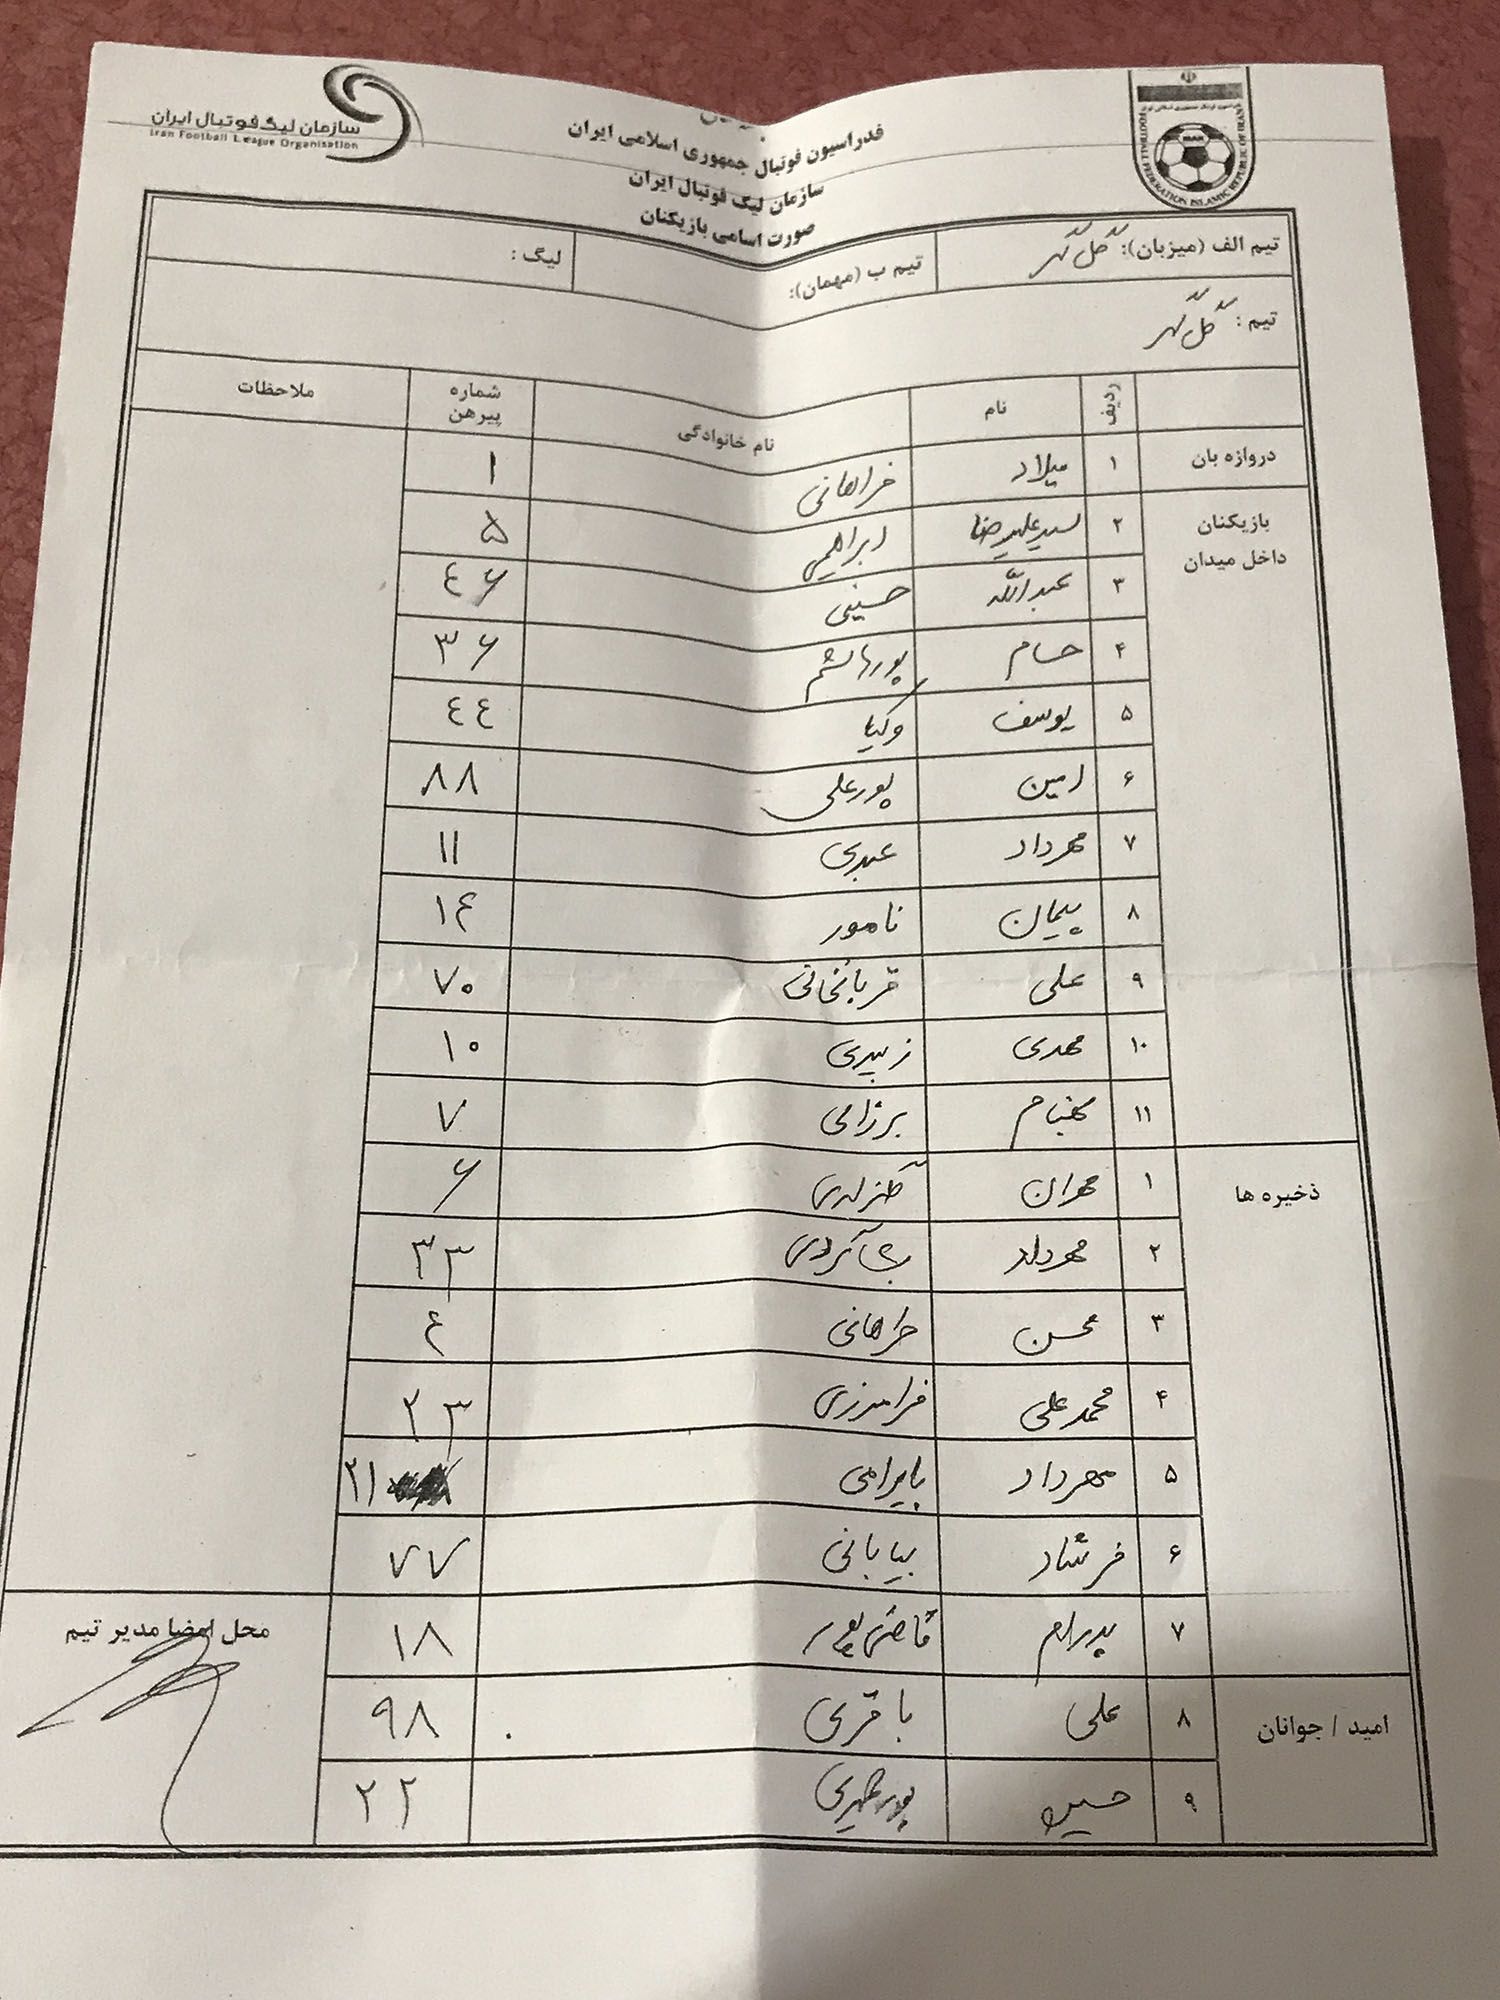 سازمان لیگ فوتبال ایران
Iran Football League Organisation
فدراسیون فوتبال جمهوری اسلامی ایران
سازمان لیگ فوتبال ایران
صورت اسامی بازیکنان
IRAN
FOOTBALL FEDERATION ISLAMIC REPUBLIC OF IRAN
تیم الف (میزبان): گل گهر تیم ب (مهمان): لیگ :
تیم : گل گهر
ردیف نام نام خانوادگی شماره پیرهن ملاحظات
دروازه بان ۱ میلاد فراهانی ۱
بازیکنان داخل میدان ۲ سیدعلیرضا ابراهیمی ۵
۳ عبدالله حسینی ۴۶
۴ حسام پورهاشم ۳۶
۵ یوسف وکیا ۴۴
۶ امین پورعلی ۸۸
۷ مهرداد عبدی ۱۱
۸ پیمان نامور ۱۴
۹ علی قربانخانی ۷۰
۱۰ مهدی زبیری ۱۰
۱۱ بهنام برزامی ۷
ذخیره ها ۱ مهران گلزاری ۶
۲ مهرداد ۳۳
۳ محسن فراهانی ۴
۴ محمدعلی فرامرزی ۲۳
۵ مهرداد بایرامی ۲۱
۶ فرشاد بیابانی ۷۷
۷ پدرام قاضی پور ۱۸
امید / جوانان ۸ علی باقری ۹۸
۹ حسین پور ۲۲
محل امضا مدیر تیم